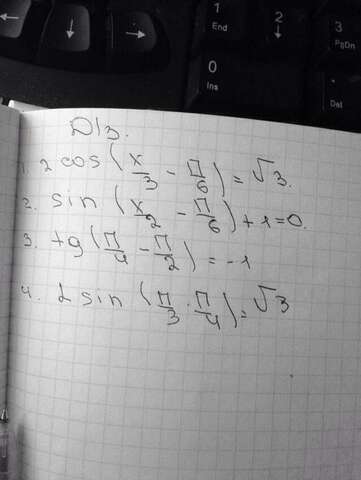 1
End
2
↓
3
PgDn
0
Ins
.
Del
← ↓ →
D/з.
1. 2 cos (x/3 - π/6) = √3.
2. sin (x/2 - π/6) + 1 = 0.
3. tg (π/4 - π/2) = -1
4. 2 sin (π/3 · π/4) = √3